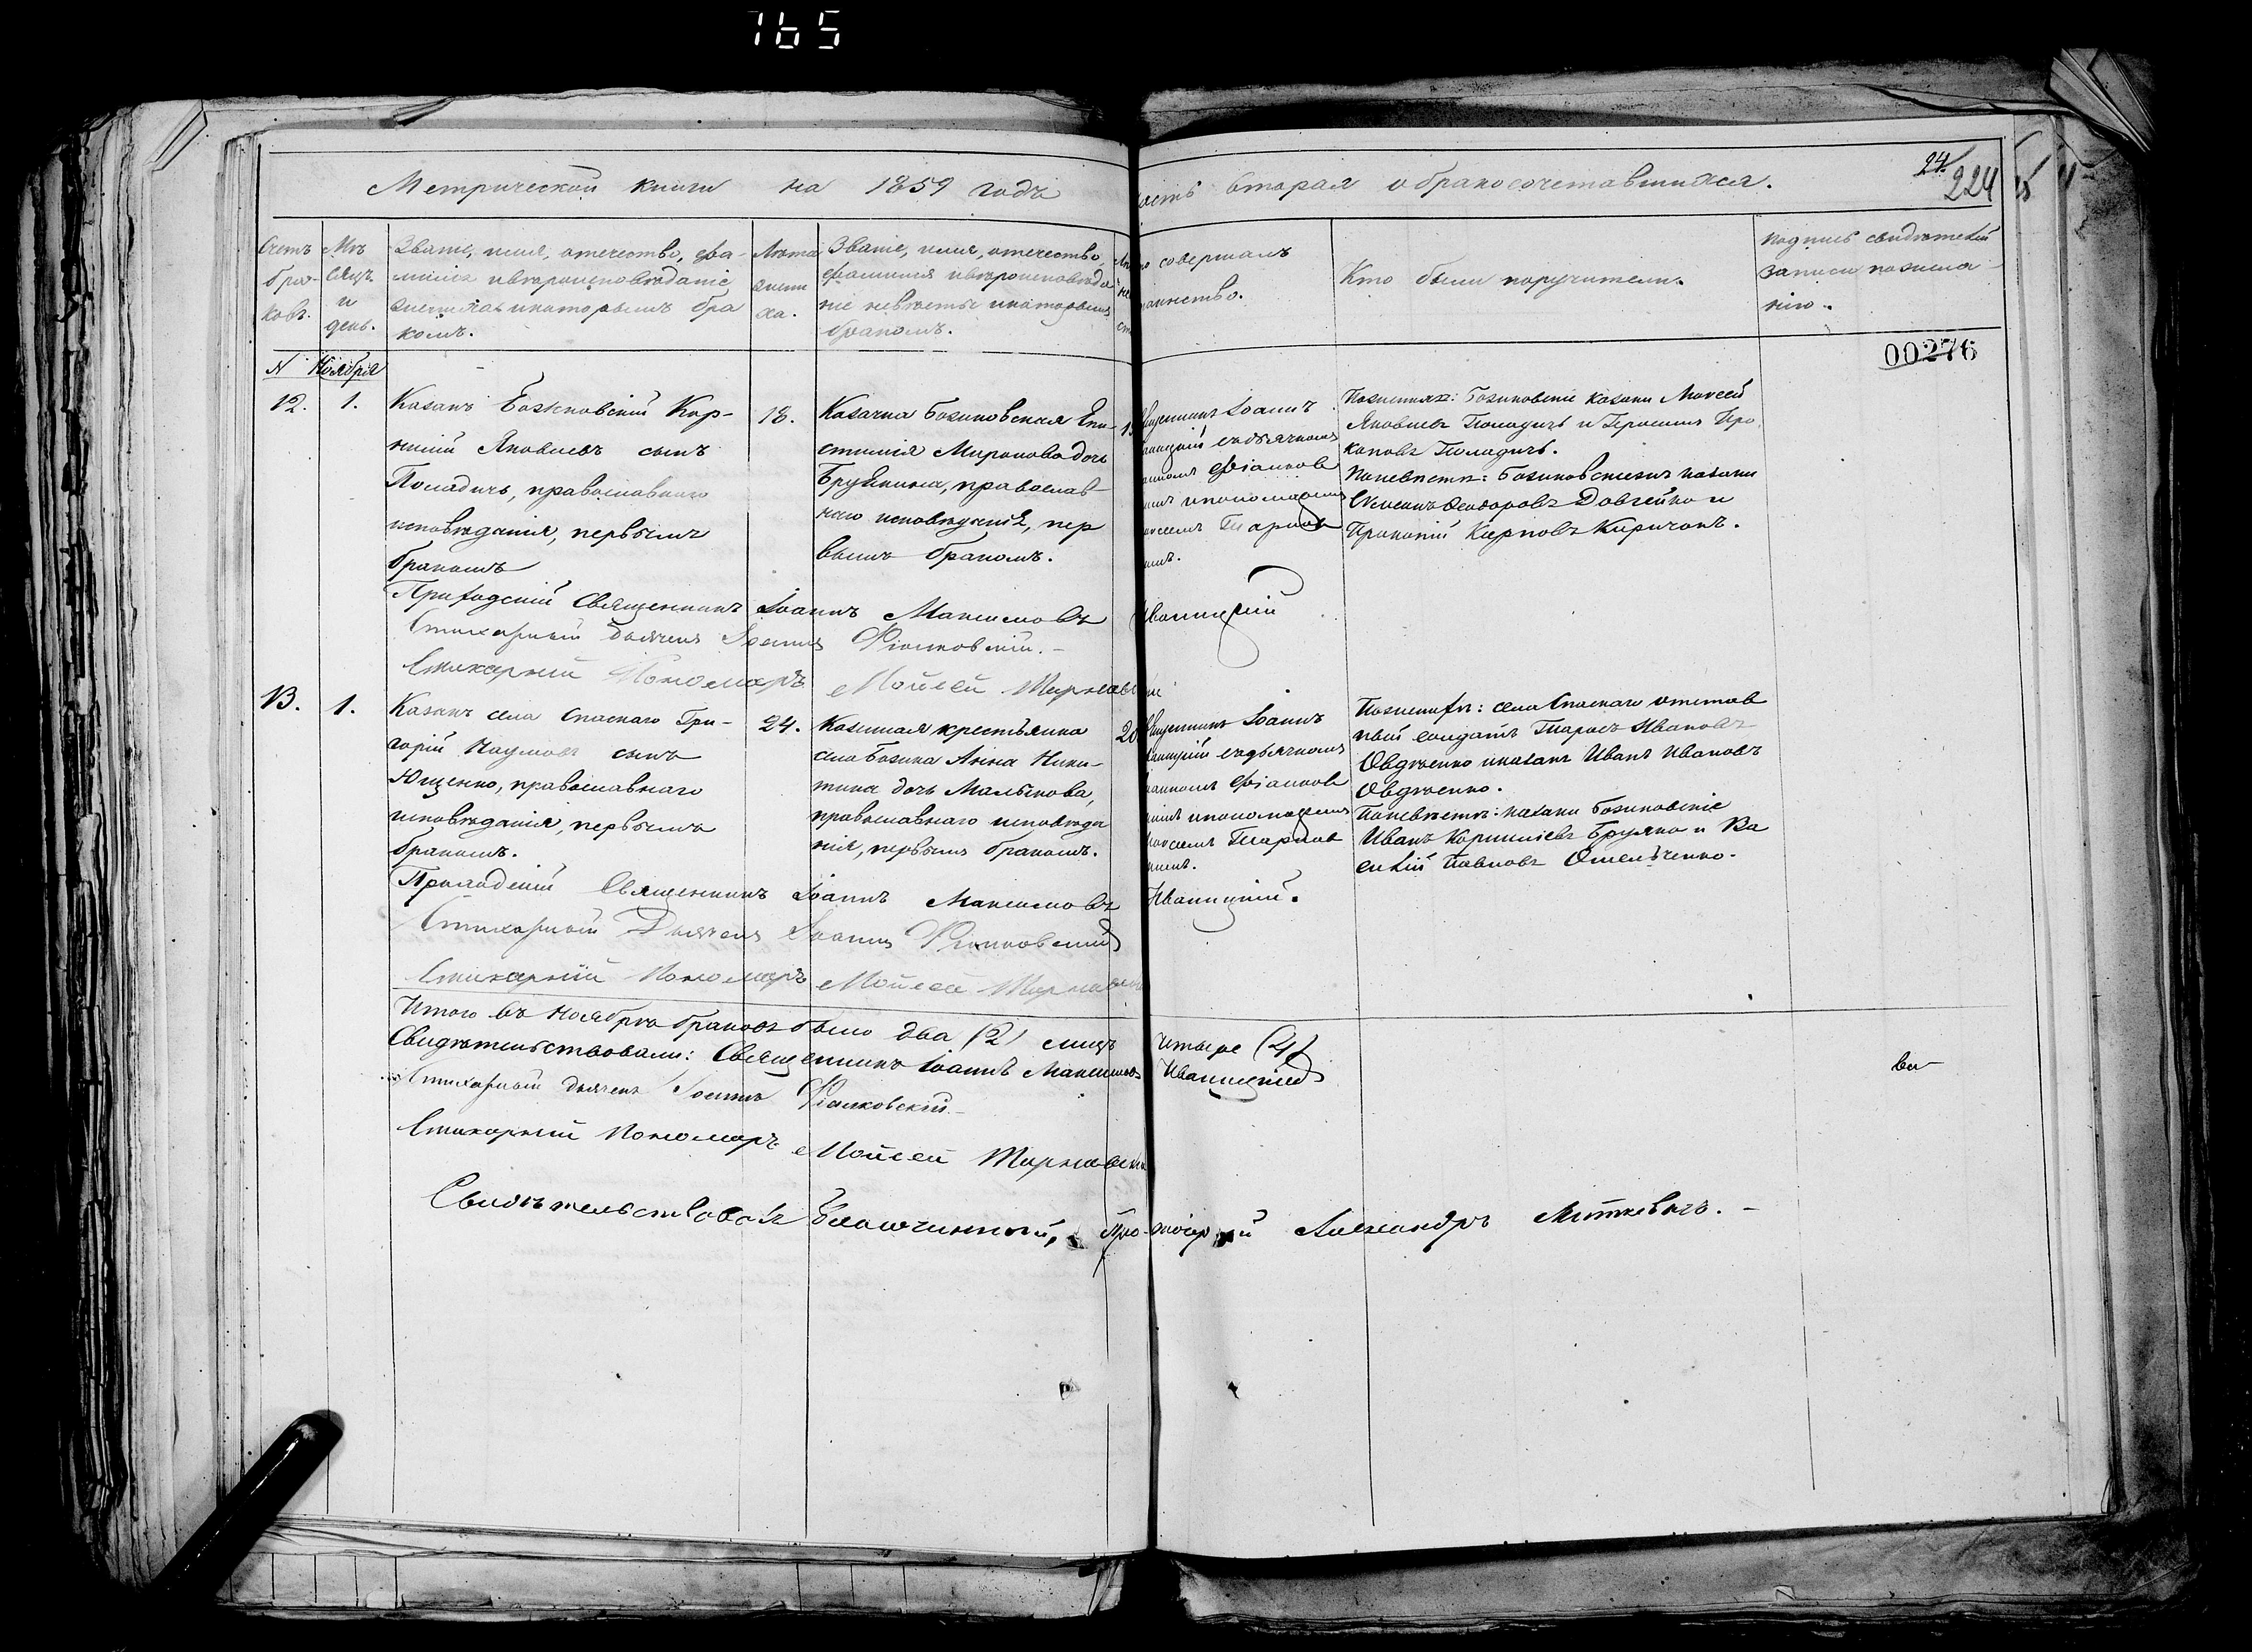 165
Метрической книги на 1859 годъ
асть вторая о бракосочетавшихся.
24.
224
Счетъ бра- ковъ.
Мѣ сяцъ и день.
Званіе, имя, отечество, фа-
милія и вѣроисповѣданіе
жениха и которымъ бра
комъ.
Лѣта жени ха.
Званіе, имя, отечество,
фамилія и вѣроисповѣда
ніе невѣсты и которымъ
бракомъ.
то совершалъ
таинство.
Кто были поручители.
подпись свидѣтелей
записи по жела
нію.
00276
N Ноября
12. 1.
Казакъ Божковскій Кор-
нилій Яковлевъ сынъ
Поладичъ, православнаго
исповѣданія, первымъ
бракомъ
18.
Козачка Божковская Епи-
стимія Миронова дочь
Бруякина, православ
наго исповѣданія, пер
вымъ бракомъ.
Священникъ Іоаннъ
Иваницкій съ дьячкомъ
Іоанномъ Фіалков
скимъ и пономаремъ
Моѵсеемъ Тарнов
скимъ.
По женихѣ: Божковскіе казаки Моѵсей
Яковлевъ Поладичъ и Герасимъ Про
коповъ Поладичъ.
По невѣстѣ: Божковскіе казаки
Семенъ Ѳеодоровъ Довгейко и
Прокопій Карповъ Киричокъ.
Приходскій Священникъ Іоаннъ Максимовъ Иваницкій
Стихарный дьячекъ Іоаннъ Фіалковскій.-
Стихарный Пономарь Мойсей Тарнавскій
13. 1.
Казакъ села Спаскаго Гри-
горій Наумовъ сынъ
Ющенко, православнаго
исповѣданія, первымъ
бракомъ.
24.
Козенная крестьянка
села Божка Анна Ники-
тина дочь Малькова,
православнаго исповѣда
нія, первымъ бракомъ.
20
Священникъ Іоаннъ
Иваницкій съ дьячкомъ
Іоанномъ Фіалков
скимъ и пономаремъ
Моѵсеемъ Тарнов
скимъ.
По женихѣ: села Спаскаго отстав
ный солдатъ Тарасъ Ивановъ
Овдѣенко и казакъ Иванъ Ивановъ
Овдѣенко.
По невѣстѣ: казаки Божковскіе
Иванъ Корниліевъ Бруяко и Ва
силій Павловъ Омельченко.
Приходскій Священникъ Іоаннъ Максимовъ Иваницкій.
Стихарный Дьячекъ Іоаннъ Фіалковскій
Стихарный Пономарь Мойсей Тарнавскій
Итого въ Ноябрѣ браковъ было два (2) лицъ четыре (4)
Свидѣтельствовали: Священникъ Іоаннъ Максимовъ Иваницкій
Стихарный дьячекъ Іоаннъ Фіалковскій.-
Стихарный Пономарь Мойсей Тарнавскій
Свидѣтельствовалъ Благочинный, Протоіерей Александръ Миткевичъ.-